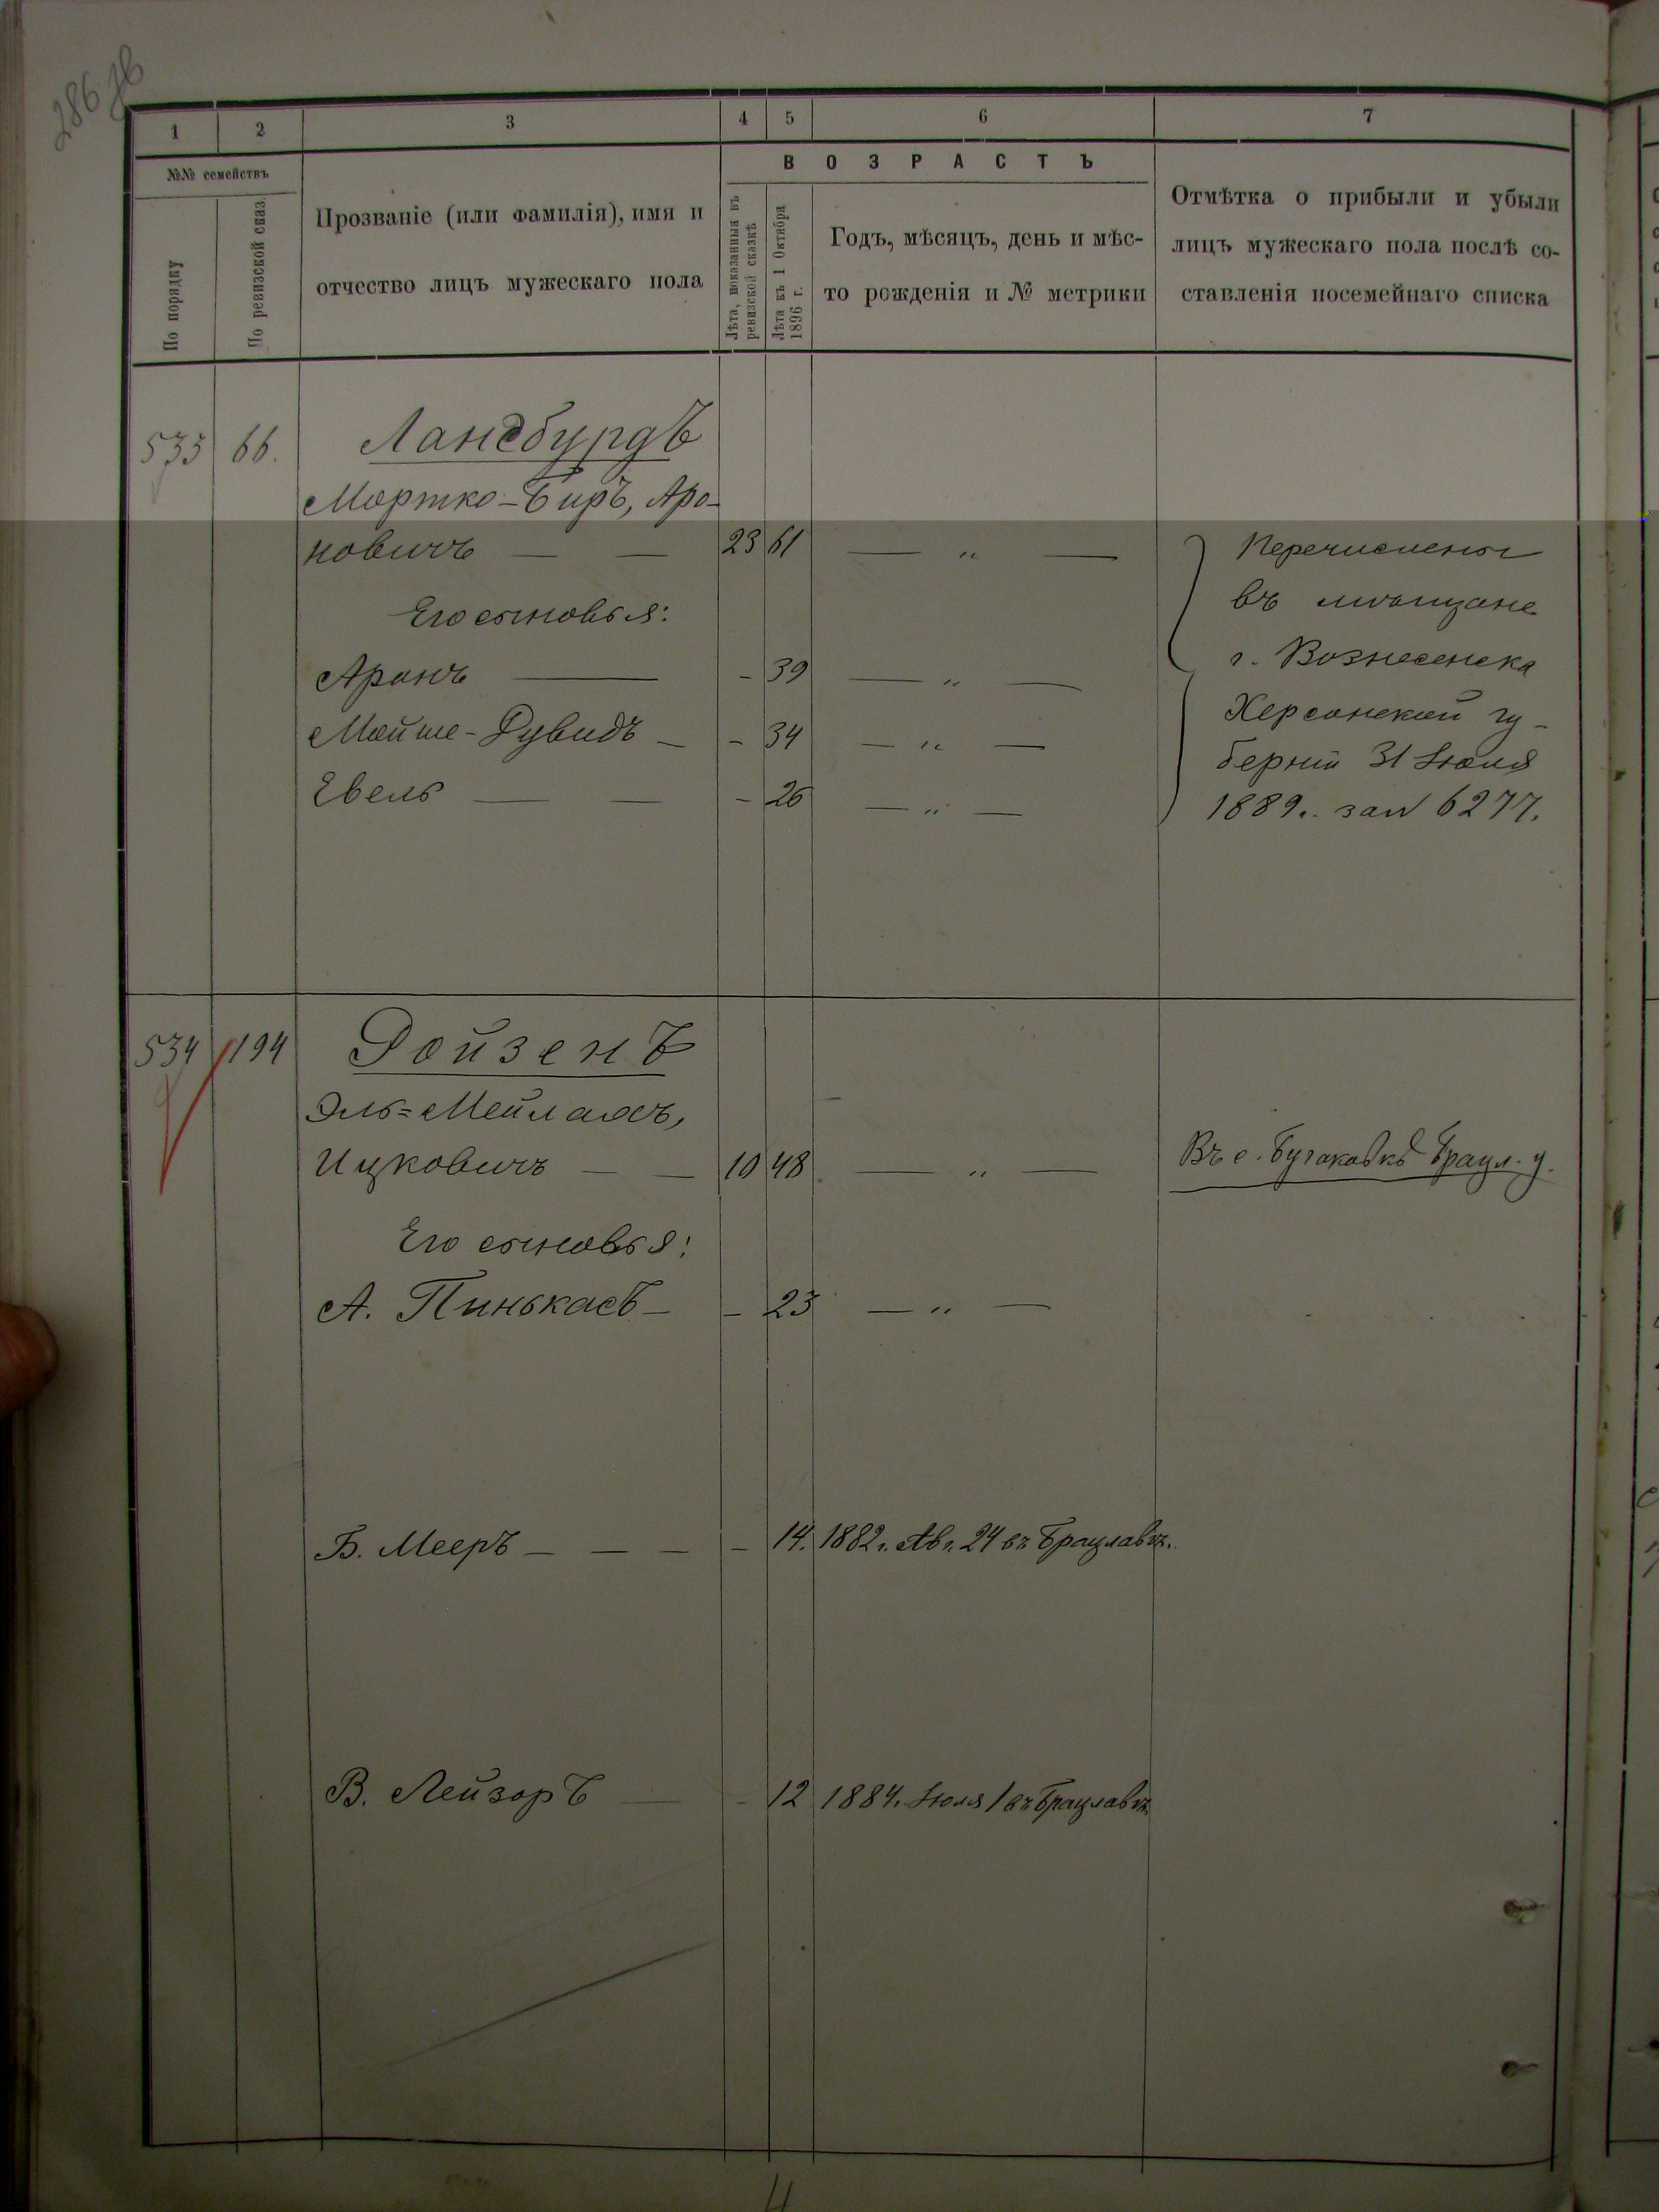 286 об
1 2 3 4 5 6 7
№№ семействъ
По порядку
По ревизской сказ.
Прозваніе (или фамилія), имя и
отчество лицъ мужескаго пола
ВОЗРАСТЪ
Лѣта, показанныя въ
ревизской сказкѣ
Лѣта къ 1 Октября
1896 г.
Годъ, мѣсяцъ, день и мѣс-
то рожденія и № метрики
Отмѣтка о прибыли и убыли
лицъ мужескаго пола послѣ со-
ставленія посемейнаго списка
533 66. Лансбургъ
Мортко-Биръ, Аро-
новичъ — — 23 61 — " —
Его сыновья:
Аронъ — - 39 — " —
Мойше-Дувидъ — - 34 — " —
Евель — — - 26 — " —
Перечислены
въ мѣщане
г. Вознесенска
Херсонской гу-
берніи 31 Іюля
1889. за № 6277.
534 194 Ройзенъ
Эль=Мейлахъ,
Ицковичъ — — 10 48 — " —
Въ с. Бугаковкѣ Брацл. у.
Его сыновья:
А. Пинькасъ — - 23 — " —
Б. Мееръ — — — - 14. 1882 г. Авг. 24 въ Брацлавѣ.
В. Лейзоръ — - 12 1884. Іюля 1 въ Брацлавѣ